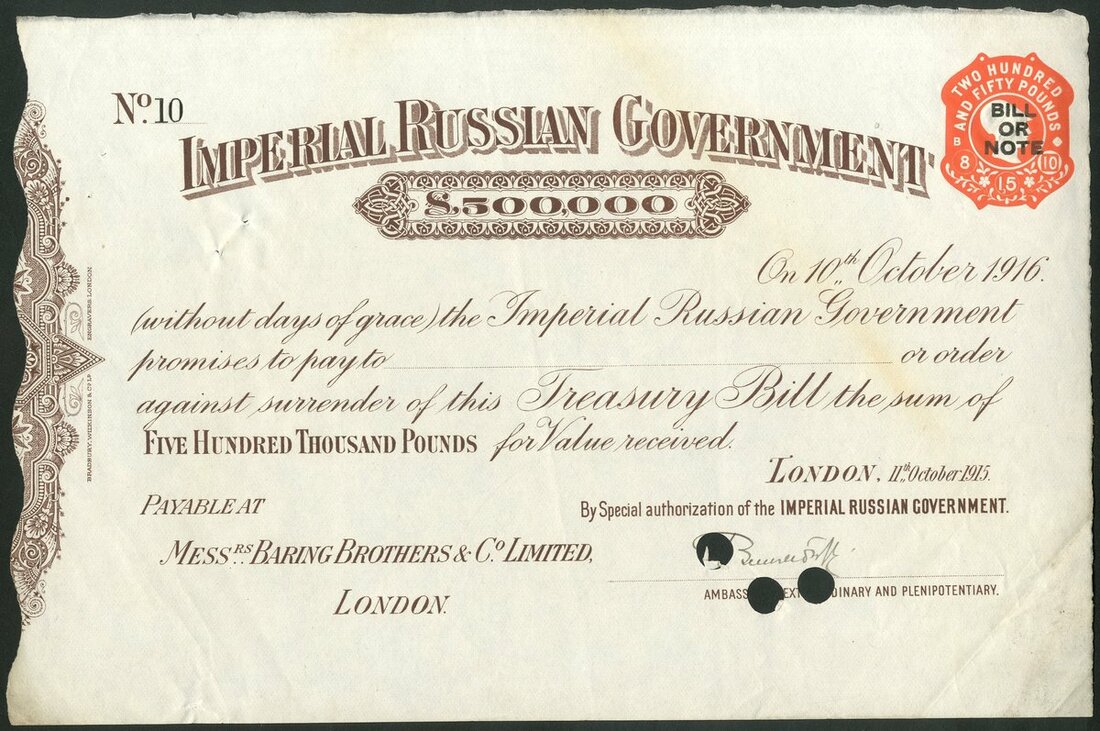 No. 10
IMPERIAL RUSSIAN GOVERNMENT
£500,000
TWO HUNDRED
AND FIFTY POUNDS
BILL
OR
NOTE
B 8 15 10
On 10th October 1916.
(without days of grace) the Imperial Russian Government
promises to pay to or order
against surrender of this Treasury Bill the sum of
FIVE HUNDRED THOUSAND POUNDS for Value received.
LONDON, 11th October 1915.
PAYABLE AT
By Special authorization of the IMPERIAL RUSSIAN GOVERNMENT.
MESSRS. BARING BROTHERS & CO. LIMITED,
LONDON.
PLENIPOTENTIARY.
BRADBURY, WILKINSON & CO. LD. ENGRAVERS, LONDON